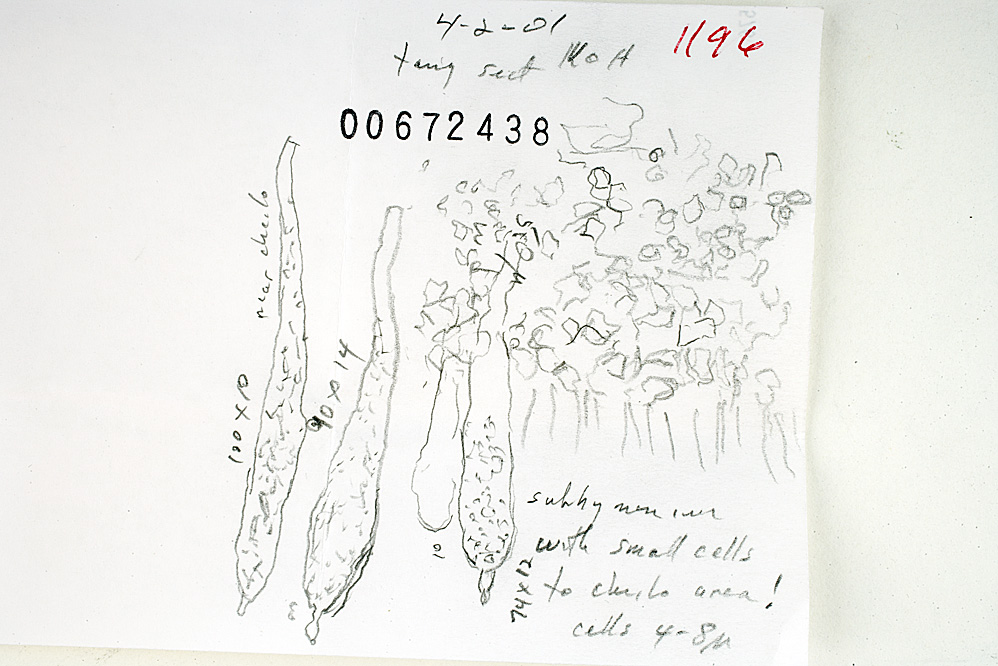 4-2-01
1196
tang sect KOH
00672438
near cheilo
100 x 10
90 x 14
10
74 x 12
subhymenium
with small cells
to cheilo area!
cells 4-8µ